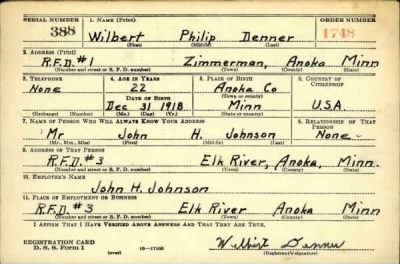 SERIAL NUMBER 1. NAME (Print) ORDER NUMBER
388 Wilbert Philip Denner 1748
(First) (Middle) (Last)
2. ADDRESS (Print)
R.F.D. #1 Zimmerman, Anoka Minn
(Number and street or R. F. D. number) (Town) (County) (State)
3. TELEPHONE 4. AGE IN YEARS 5. PLACE OF BIRTH 6. COUNTRY OF CITIZENSHIP
None 22 Anoka Co
DATE OF BIRTH (Town or county)
Dec 31 1918 Minn U.S.A.
(Exchange) (Number) (Mo.) (Day) (Yr.) (State or country)
7. NAME OF PERSON WHO WILL ALWAYS KNOW YOUR ADDRESS 8. RELATIONSHIP OF THAT PERSON
Mr John H. Johnson None
(Mr., Mrs., Miss) (First) (Middle) (Last)
9. ADDRESS OF THAT PERSON
R.F.D. #3 Elk River, Anoka, Minn.
(Number and street or R. F. D. number) (Town) (County) (State)
10. EMPLOYER'S NAME
John H. Johnson
11. PLACE OF EMPLOYMENT OR BUSINESS
R.F.D. #3 Elk River Anoka Minn
(Number and street or R. F. D. number) (Town) (County) (State)
I AFFIRM THAT I HAVE VERIFIED ABOVE ANSWERS AND THAT THEY ARE TRUE.
REGISTRATION CARD
D. S. S. Form 1 (over) 16—17105 Wilbert Denner
(Registrant's signature)